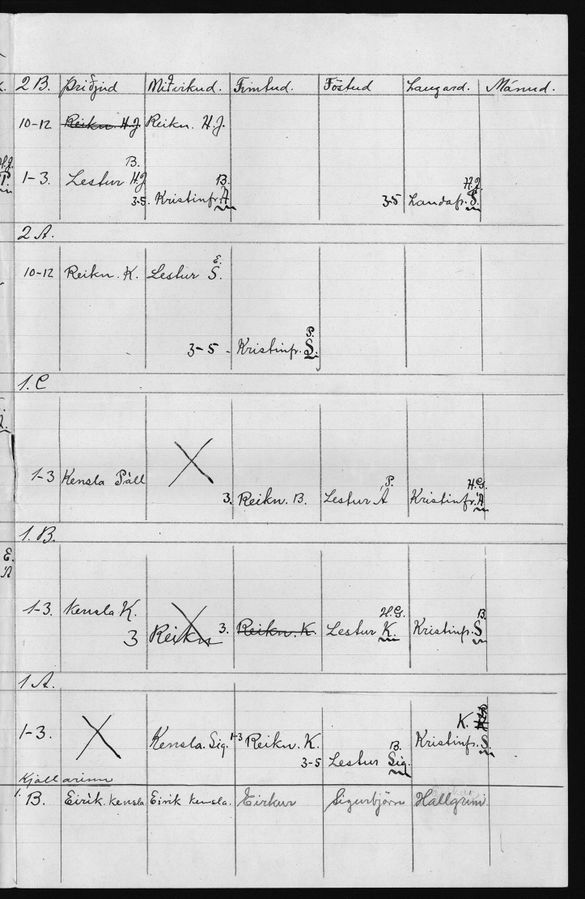 2 B. Þriðjud Miðvikud. Fimtud. Föstud Laugard. Mánud.
10-12 Reikn. H.J. Reikn. H.J.
B. H.J.
1-3. Lestur H.J. B. H.J.
3-5. Kristinfr. Á 3-5 Landafr. S.
2 A.
10-12 Reikn. K. Lestur S. E.
P.
3-5 - Kristinfr. S.
1. C
1-3 Kensla Páll P. H.G.
3. Reikn. B. Lestur Á Kristinfr. Á
1. B.
E.
1-3. Kensla K. H.G. B.
3 Reikn 3. Reikn. K. Lestur K. Kristinfr. S
1 A.
1-3. Kensla. Sig. 1-3 Reikn. K. K.
B. Kristinfr. S.
3-5 Lestur Sig.
Kjallarinn
1. B. Eirík. kensla Eirík kensla. Eirkur Sigurbjörn Hallgrím